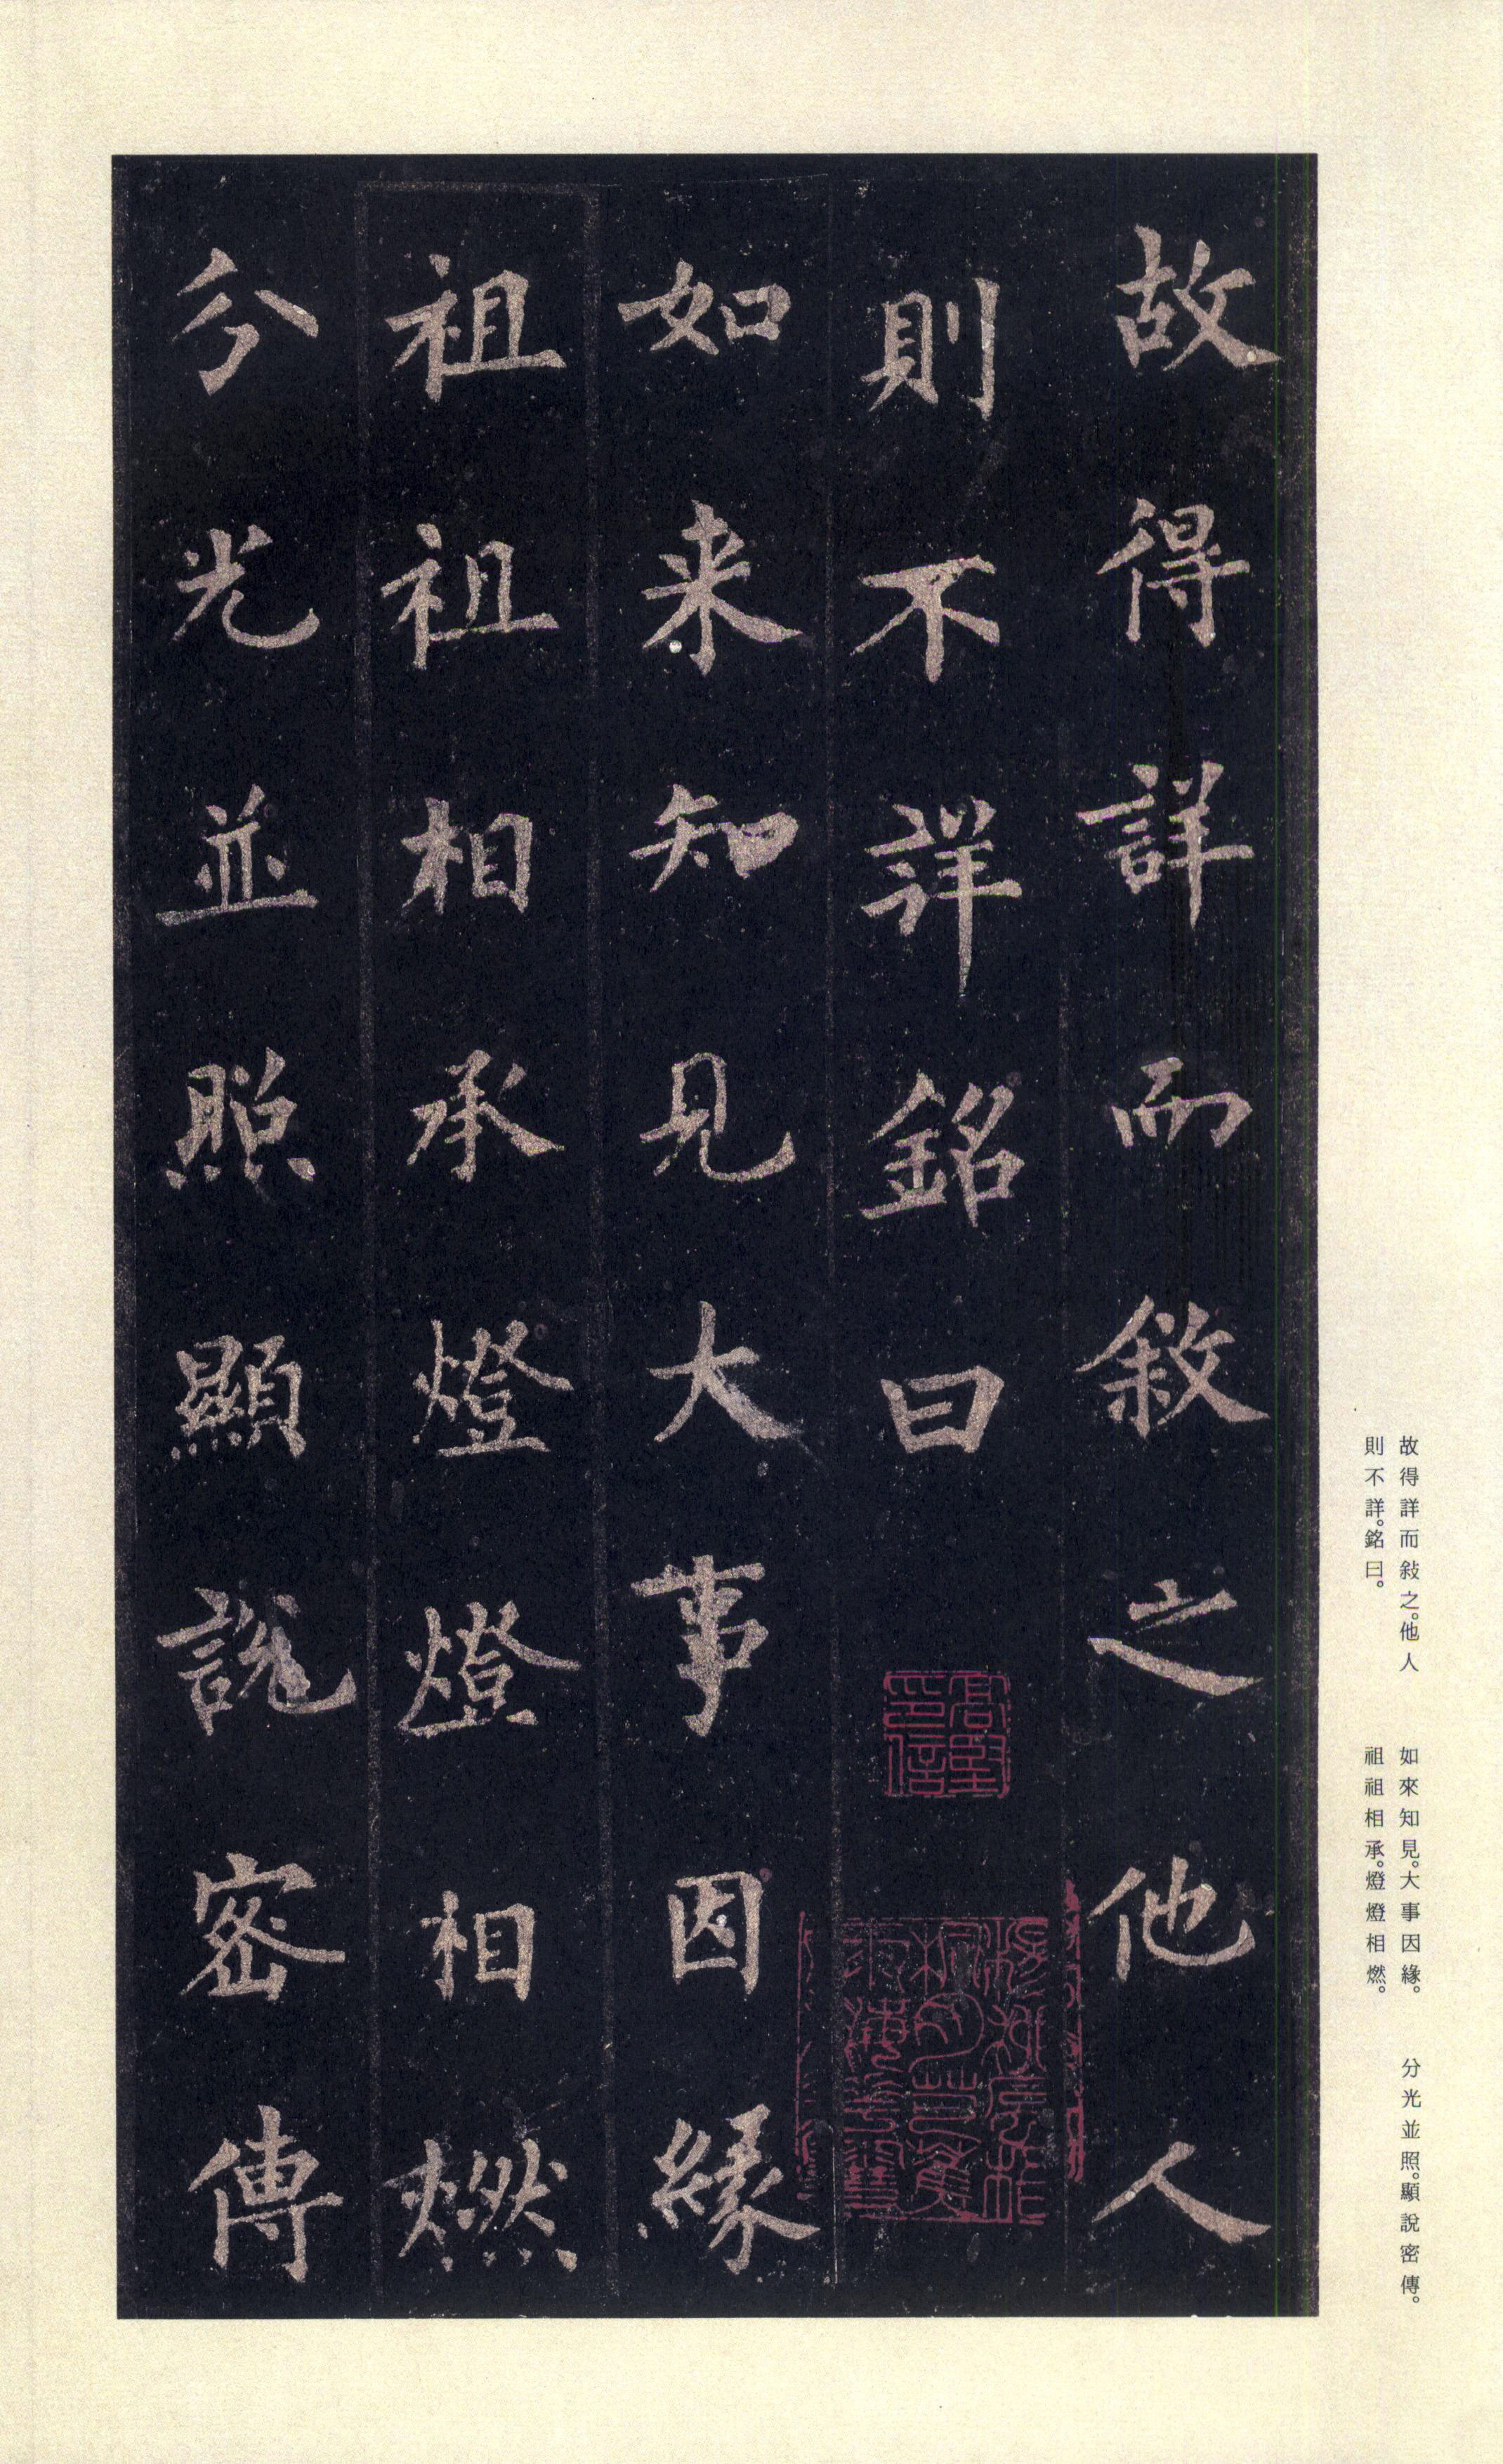 故得詳而敘之。他人
則不詳。銘曰。
如來知見。大事因緣。
祖祖相承。燈燈相燃。
分光並照。顯說密傳。
故得詳而敘之他人
則不詳銘曰
如来知見大事因緣
祖祖相承燈燈相燃
分光並照顯說密傳